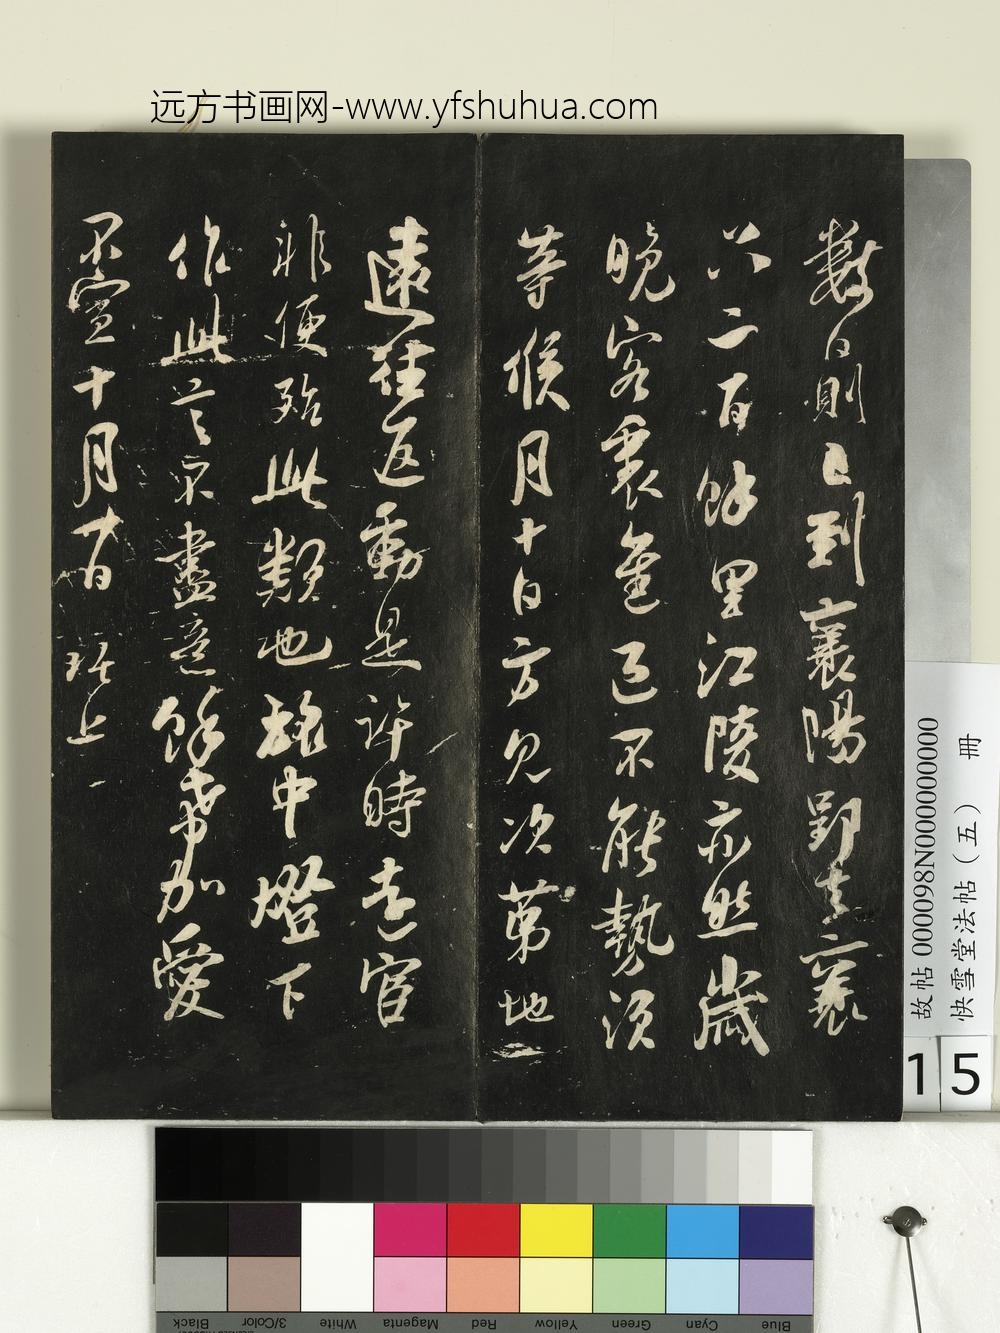 远方书画网-www.yfshuhua.com
數日則已到襄陽郢去襄
只二百餘里江陵亦然歲
晚客裏已不能熱須
等候月十日方見次第地
遠往返動是許時走官
非便殆此類也旅中燈下
作此言不盡意餘希加愛
不宣十月日 上
故帖 000098N000000000
快雪堂法帖（五） 冊
15
Black
3/Color
White
Magenta
Red
Yellow
Green
Cyan
Blue